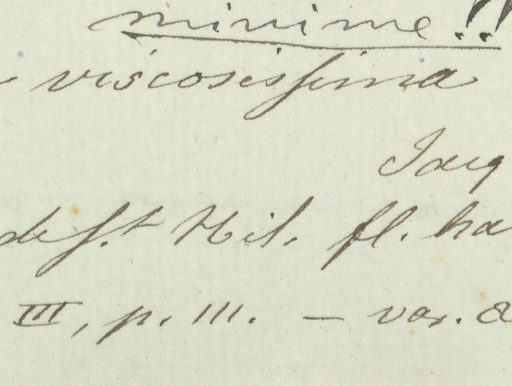 minime!!
viscosissima
Jacq
de St Hil. fl. ba
III, p. 111. — var. α